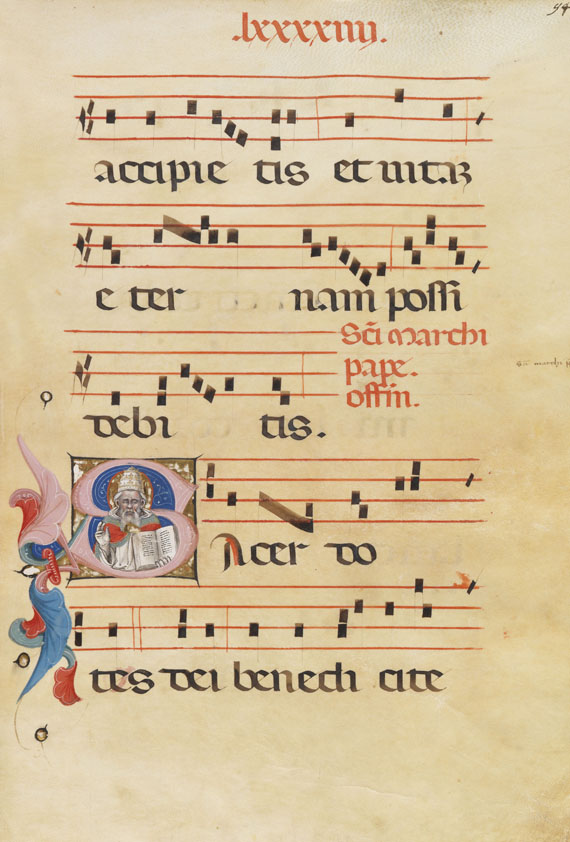 .lxxxxiiij.
94
accipie tis et uitaz
e ter nam possi
Sci marchi
pape.
offin.
debi tis.
S Acer do
tes dei benedi cite